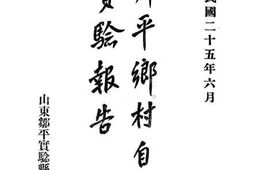 民國二十五年六月
鄒平鄉村自
實驗報告
山東鄒平實驗縣